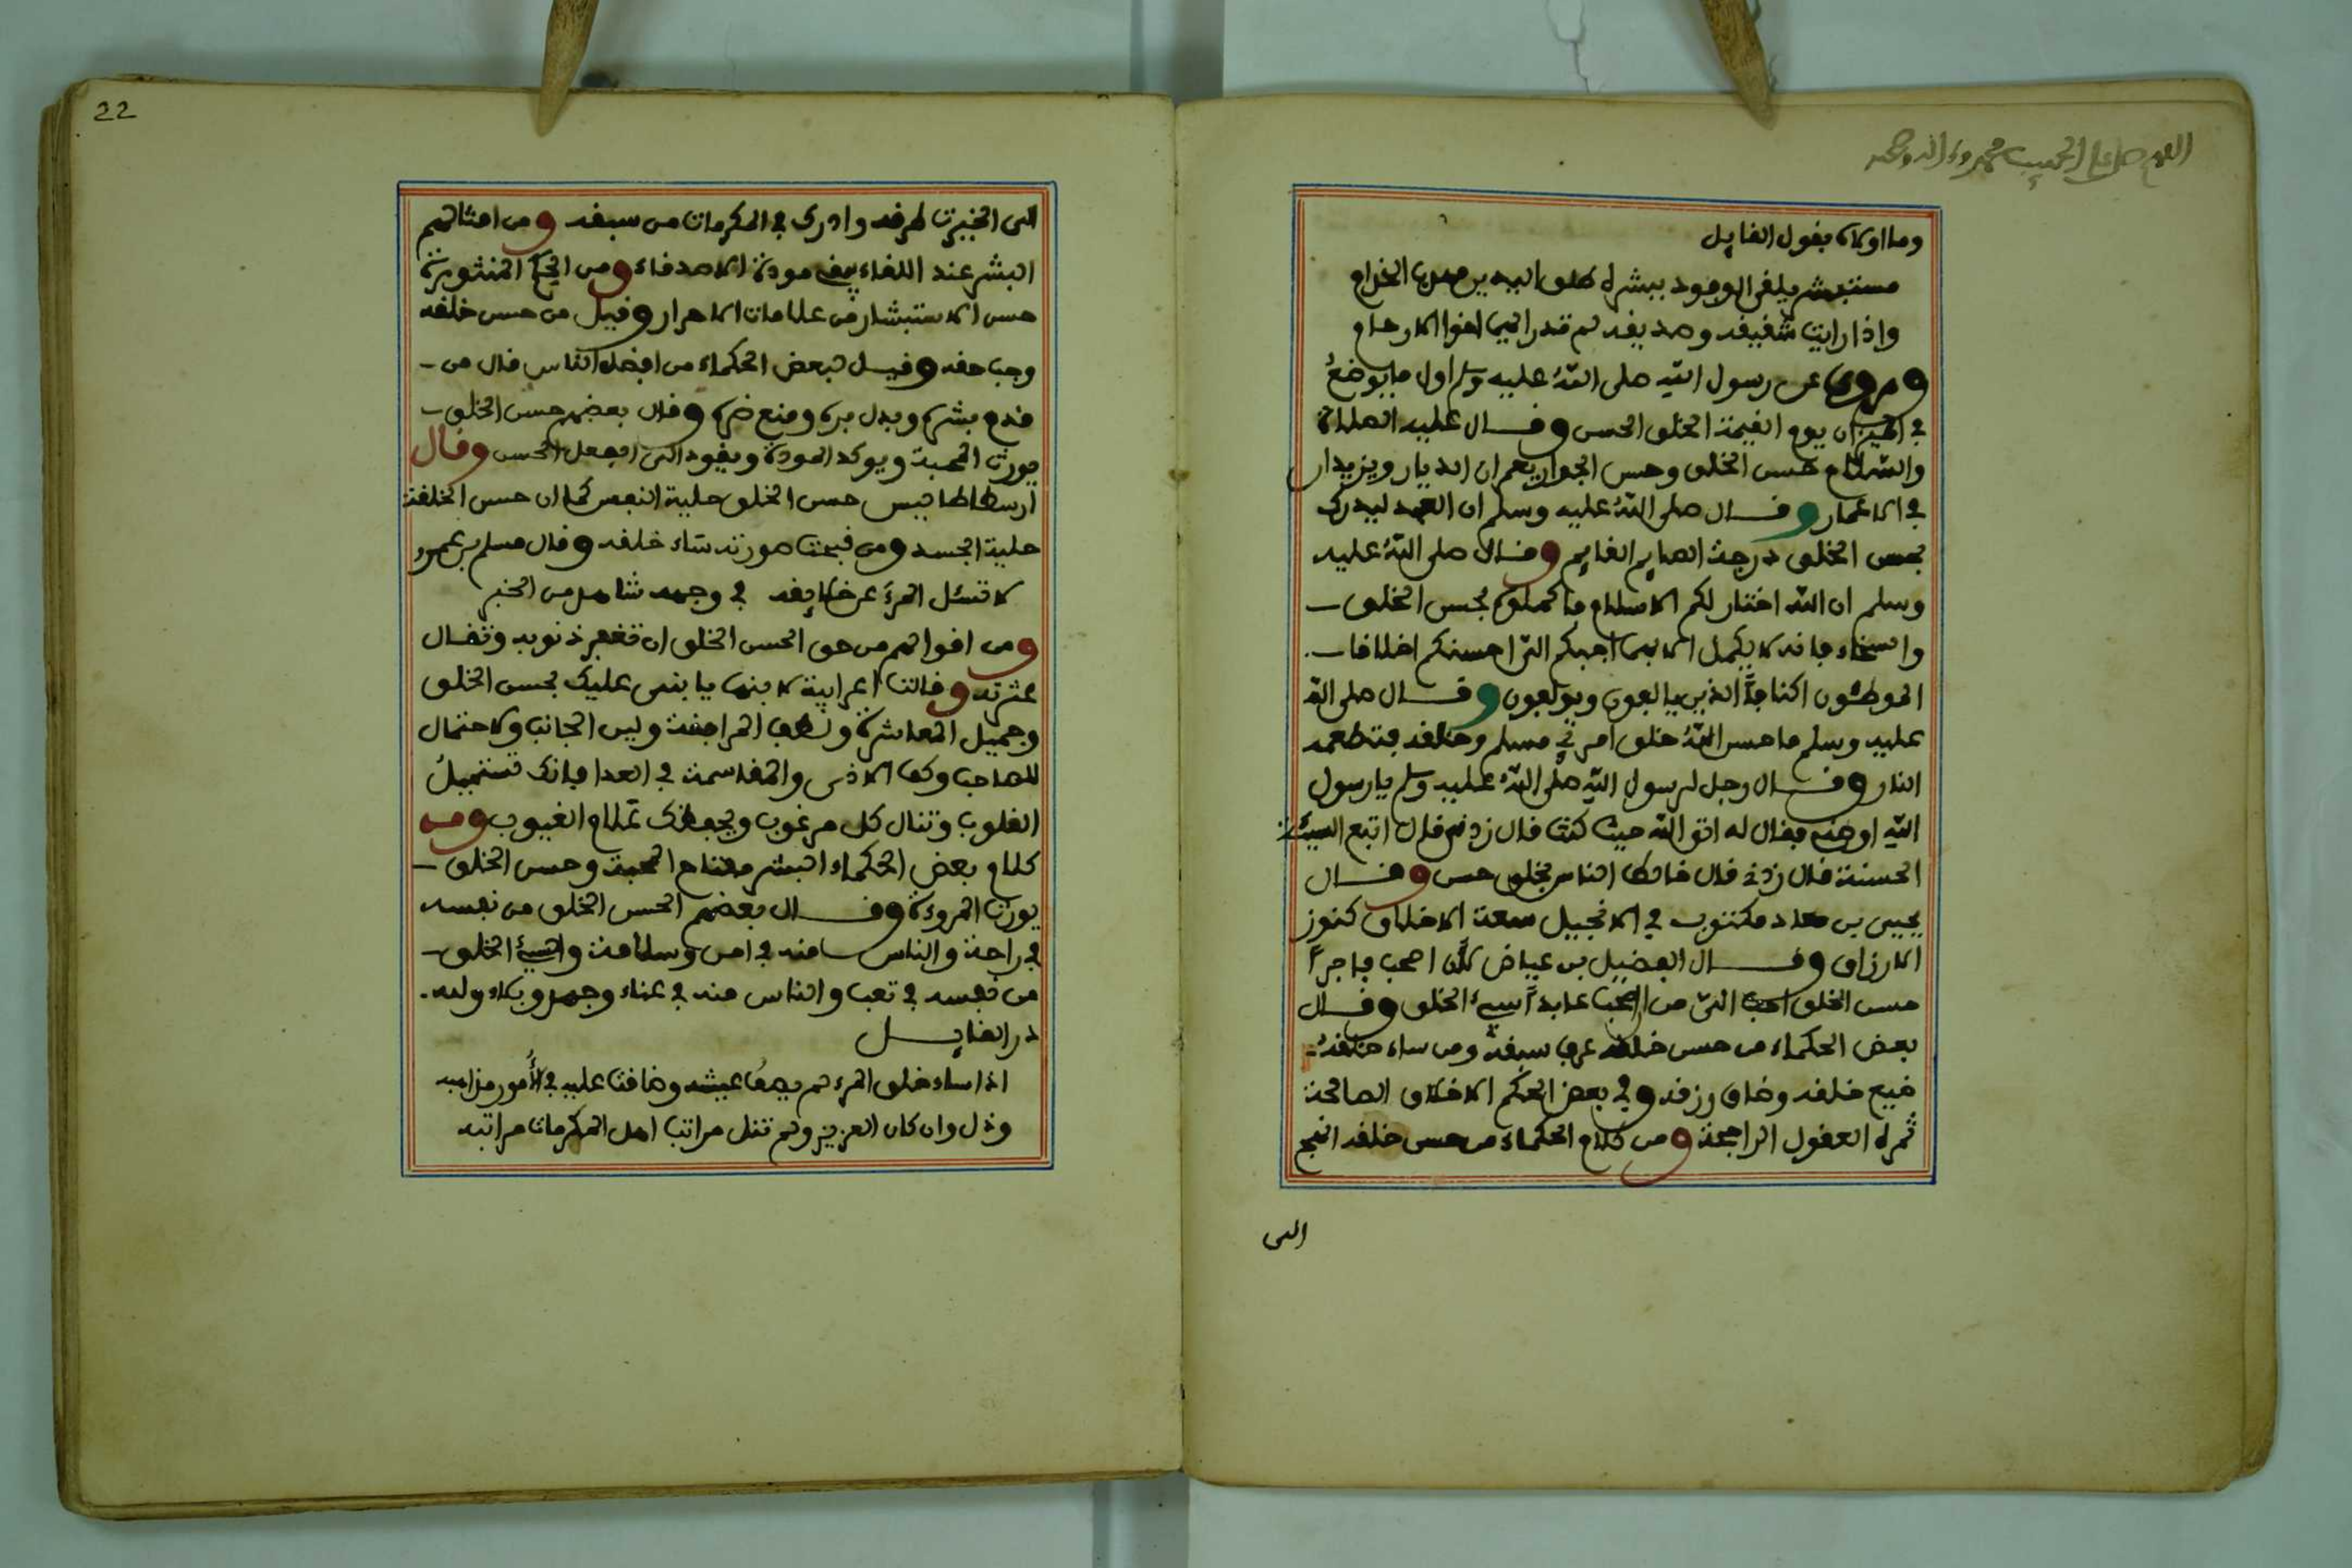 اللهم صل على الحبيب محمد وءاله وصحبه
وما اولاه بقول القايل
مستبشر يلقى الوفود ببشره طلق اليدين مهذب الخدام
واذا رايت شقيقه وصديقه لم تدر ايهما اخوا الارحام
وروى عن رسول الله صلى الله عليه وسلم اول ما يوضع
في الميزان يوم القيمة الخلق الحسن وقال عليه الصلاة
والسلام حسن الخلق وحسن الجوار يعمران الديار ويزيدان
في الاعمار وقال صلى الله عليه وسلم ان العبد ليدرك
بحسن الخلق درجة الصايم القايم وقال صلى الله عليه
وسلم ان الله اختار لكم الاسلام فاكملوه بحسن الخلق
والسخاء فانه لا يكمل الا بهما احبكم الي احسنكم اخلاقا
الموطئون اكنافا الذين يالفون ويولفون وقال صلى الله
عليه وسلم ما حسن الله خلق امرئ مسلم وخلقه فتطعمه
النار وقال رجل لرسول الله صلى الله عليه وسلم يا رسول
الله اوصني فقال له اتق الله حيث كنت قال زدني قال اتبع السيئة
الحسنة قال زدني قال خالط الناس بخلق حسن وقال
يحيى بن معاذ مكتوب في الانجيل سعة الاخلاق كنوز
الارزاق وقال الفضيل بن عياض لان اصحب فاجرا
حسن الخلق احب الي من ان اصحب عابدا سيئ الخلق وقال
بعض الحكماء من حسن خلقه عرف سبقه ومن ساء خلقه
ضيع خلقه وضاق رزقه وفي بعض الحكم الاخلاق الصالحة
ثمرة العقول الراجحة ومن كلام الحكماء من حسن خلقه انهج
الى
22
الى الخيرات طرقه وادرك في المكرمات من سبقه ومن امثالهم
البشر عند اللقاء يبقي مودة الاصدقاء ومن الحكم المنثورة
حسن الاستبشار من علامات الاحرار وقيل من حسن خلقه
وجب حقه وقيل لبعض الحكماء من افضل الناس قال من
قدم بشره وبذل بره ومنع ضره وقال بعضهم حسن الخلق
يورث المحبة ويوكد المودة ويقود الى الفعل الحسن وقال
ارسطاطاليس حسن الخلق حلية النفس كما ان حسن الخلقة
حلية الجسد ومن قبحت صورته ساء خلقه وقال مسلم بن عمرو
لا تسئل المرء عن خلايقه في وجهه شاهد من الخبر
ومن اقوالهم من حق الحسن الخلق ان تغفر ذنوبه وتقال
عثرته وقالت اعرابية لابنها يا بني عليك بحسن الخلق
وجميل المعاشرة ولطف المرافقة ولين الجانب والاحتمال
للصاحب وكف الاذى والمقاسمة في العدا فانك تستميل
القلوب وتنال كل مرغوب ويجعلك علام الغيوب ومن
كلام بعض الحكماء البشر مفتاح المحبة وحسن الخلق
يورث المروءة وقال بعضهم الحسن الخلق من نفسه
في راحة والناس منه في امن وسلامة والسيئ الخلق
من نفسه في تعب والناس منه في عناء وجهد وبلاء ولله
در القايل
اذا ساء خلق المرء لم يصف عيشه وضاقت عليه في الأمور مذاهبه
وذل وان كان العزيز ولم تنل مراتب اهل المكرمات مراتبه